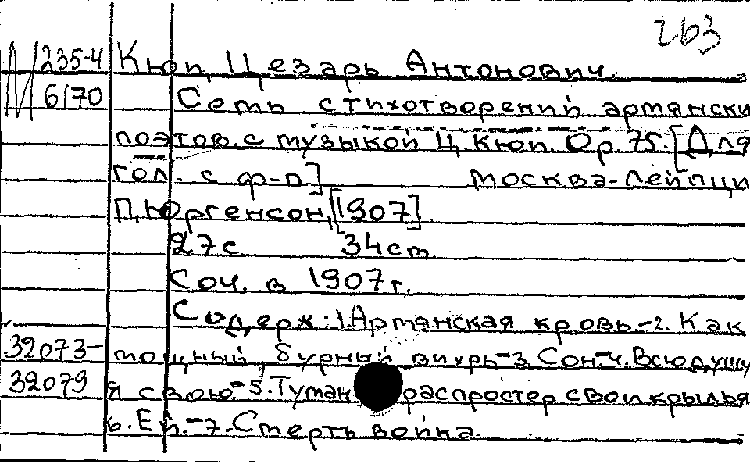 263
235-4 Кюи, Цезарь Антонович.
6170 Семь стихотворений армянски
поэтов с музыкой Ц. Кюи. Op. 75. [Для
гол. с ф-п] Москва-Лейпци
П. Юргенсон, [1907]
27 с. 34 см
Соч. в 1907 г.
Содерж: 1. Армянская кровь.-2. Как
32073- мощный, бурный вихрь-3. Сон.-4. Всю душу
32079 я свою-5. Туман распростер свои крылья
6. Ей.-7. Смерть воина